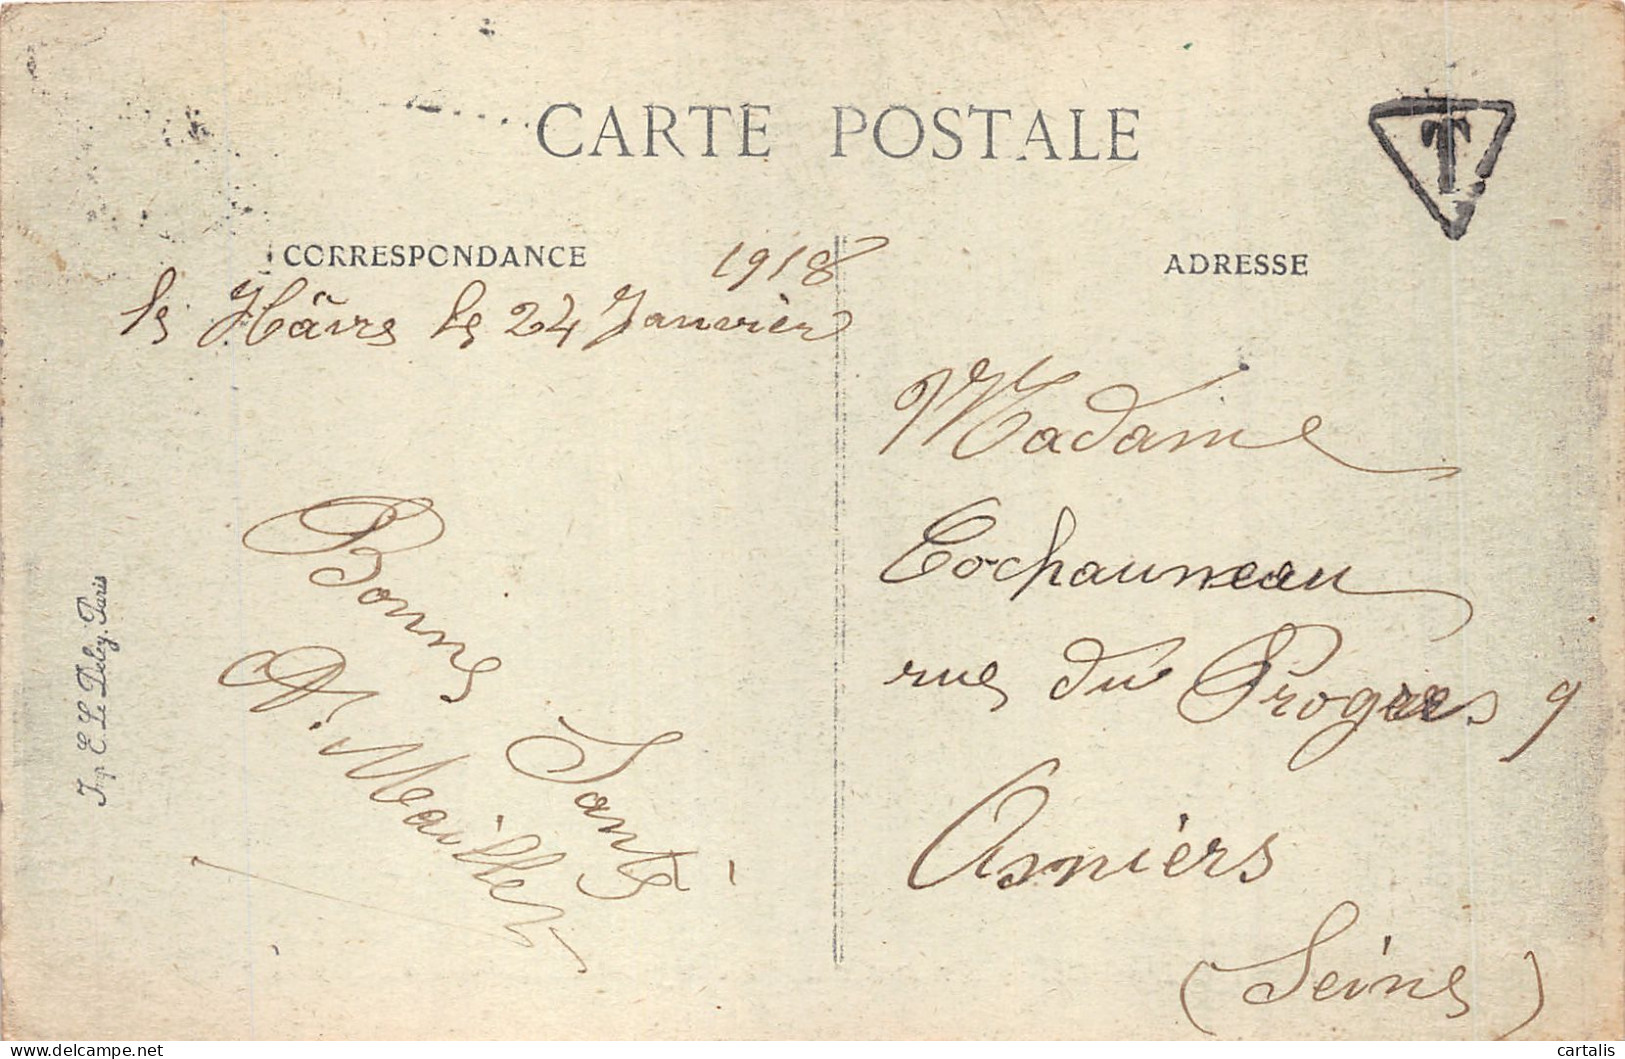 CARTE POSTALE
T
CORRESPONDANCE
1918
le Hâvre le 24 Janvier
Bonne
Santé
A. Maillet
Imp. E. Le Deley, Paris
ADRESSE
Madame
Cochauneau
rue du Progres 9
Asniers
(Seine)
delcampe.net
cartalis